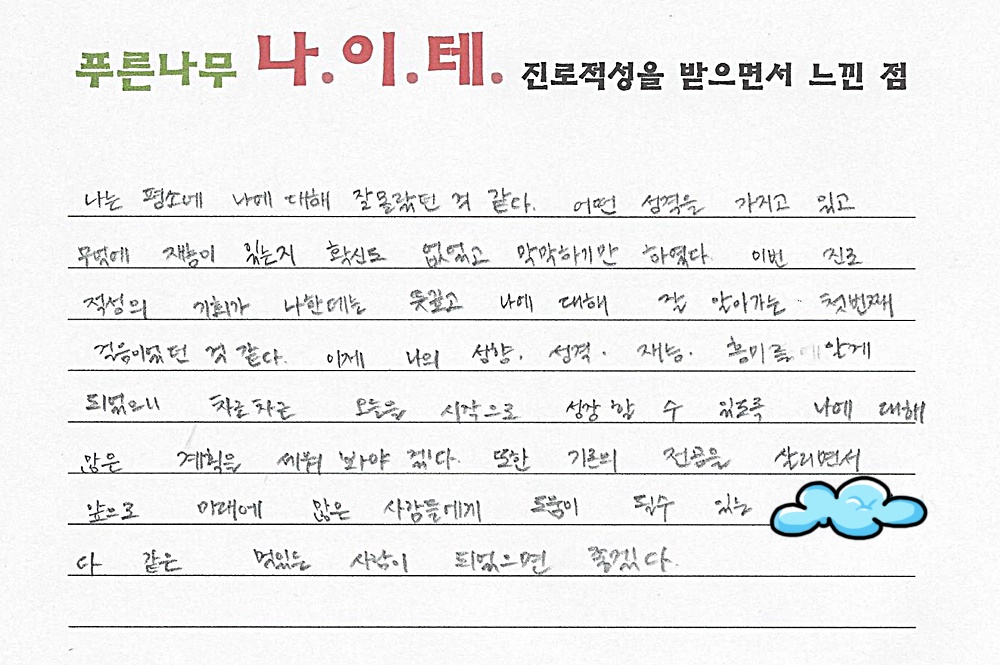 푸른나무 나.이.테. 진로적성을 받으면서 느낀 점
나는 평소에 나에 대해 잘 몰랐던 것 같다. 어떤 성격을 가지고 있고
무엇에 재능이 있는지 확신도 없었고 막막하기만 하였다. 이번 진로
적성의 기회가 나한테는 뜻깊고 나에 대해 잘 알아가는 첫번째
걸음이었던 것 같다. 이제 나의 성향, 성격, 재능, 흥미를 알게
되었으니 차근차근 오늘을 시작으로 성장할 수 있도록 나에 대해
많은 계획을 세워 봐야 겠다. 또한 기존의 전공을 살리면서
앞으로 미래에 많은 사람들에게 도움이 될수 있는
다 같은 멋있는 사람이 되었으면 좋겠다.